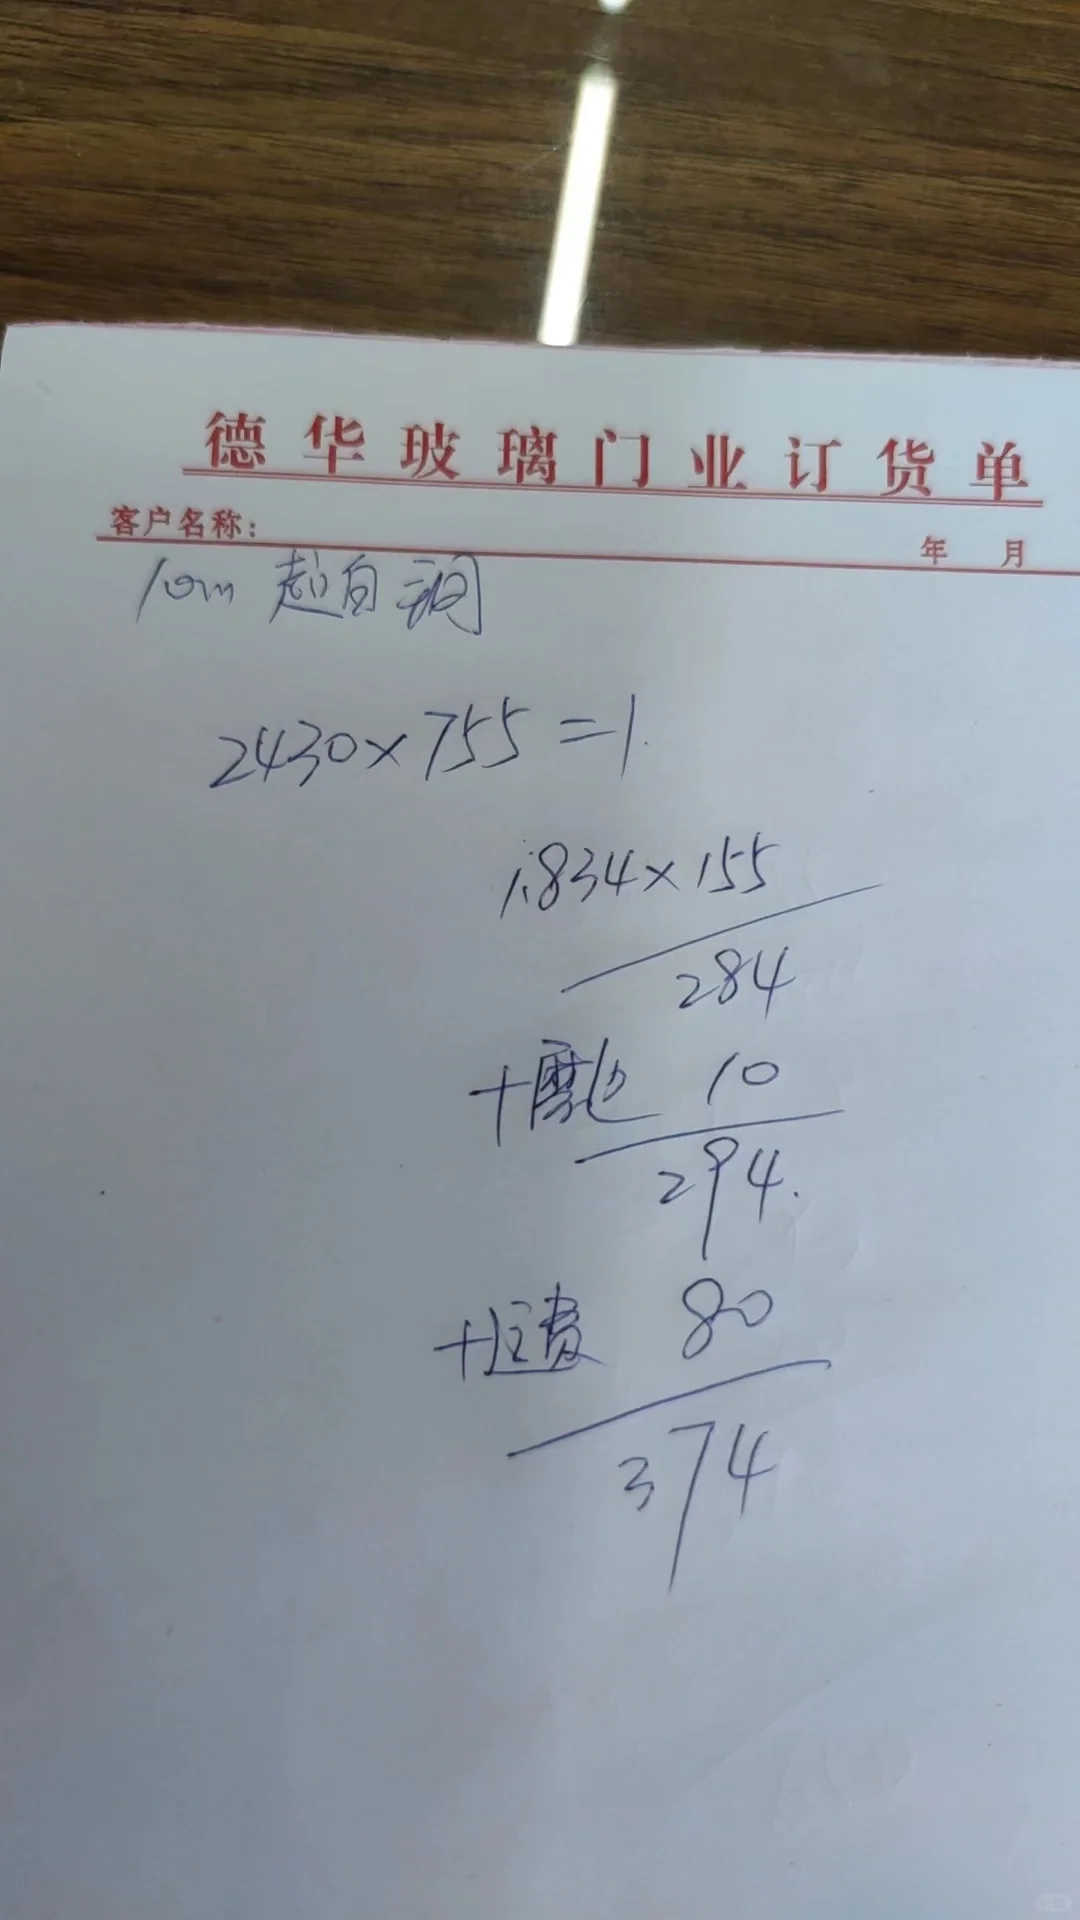 德华玻璃门业订货单
客户名称：
年 月
10m 超白钢
2430×755=1.
1.834×155
284
+磨边 10
294.
+运费 80
374